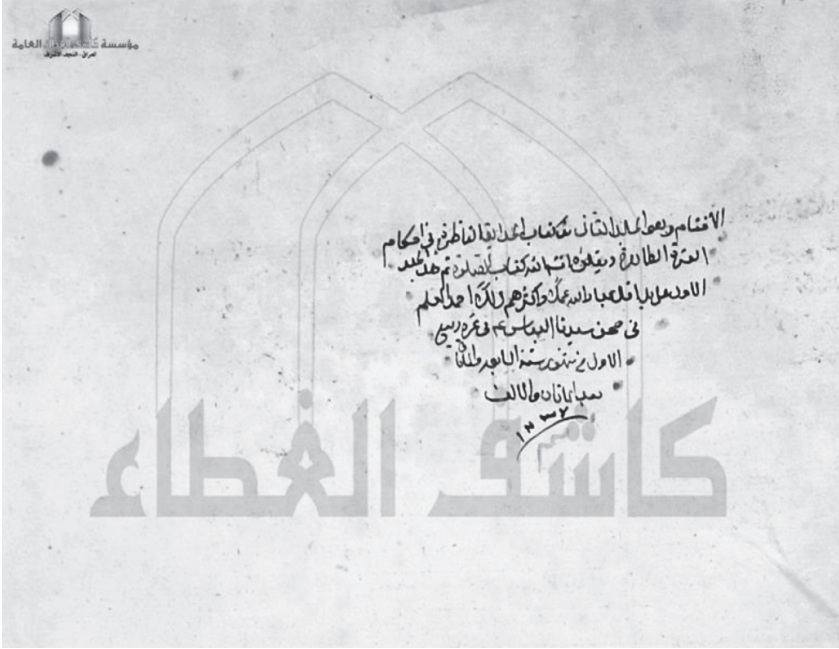 مؤسسة كاشف الغطاء العامة
العراق - النجف الأشرف
الاختتام ويتلوه المجلد الثاني من كتاب الحدائق الناظرة في احكام
العترة الطاهرة ويتلوه انشاء الله كتاب الصلوة تم هذا المجلد
الاول على يد اقل عباد الله عملا واكثرهم زللا احمد
في صحن سيدنا العباس ع في غرة ربيع
الاول من شهور سنة السابعة والثلاثين
بعد المائتان والالف
١٢٣٧
كاشف الغطاء